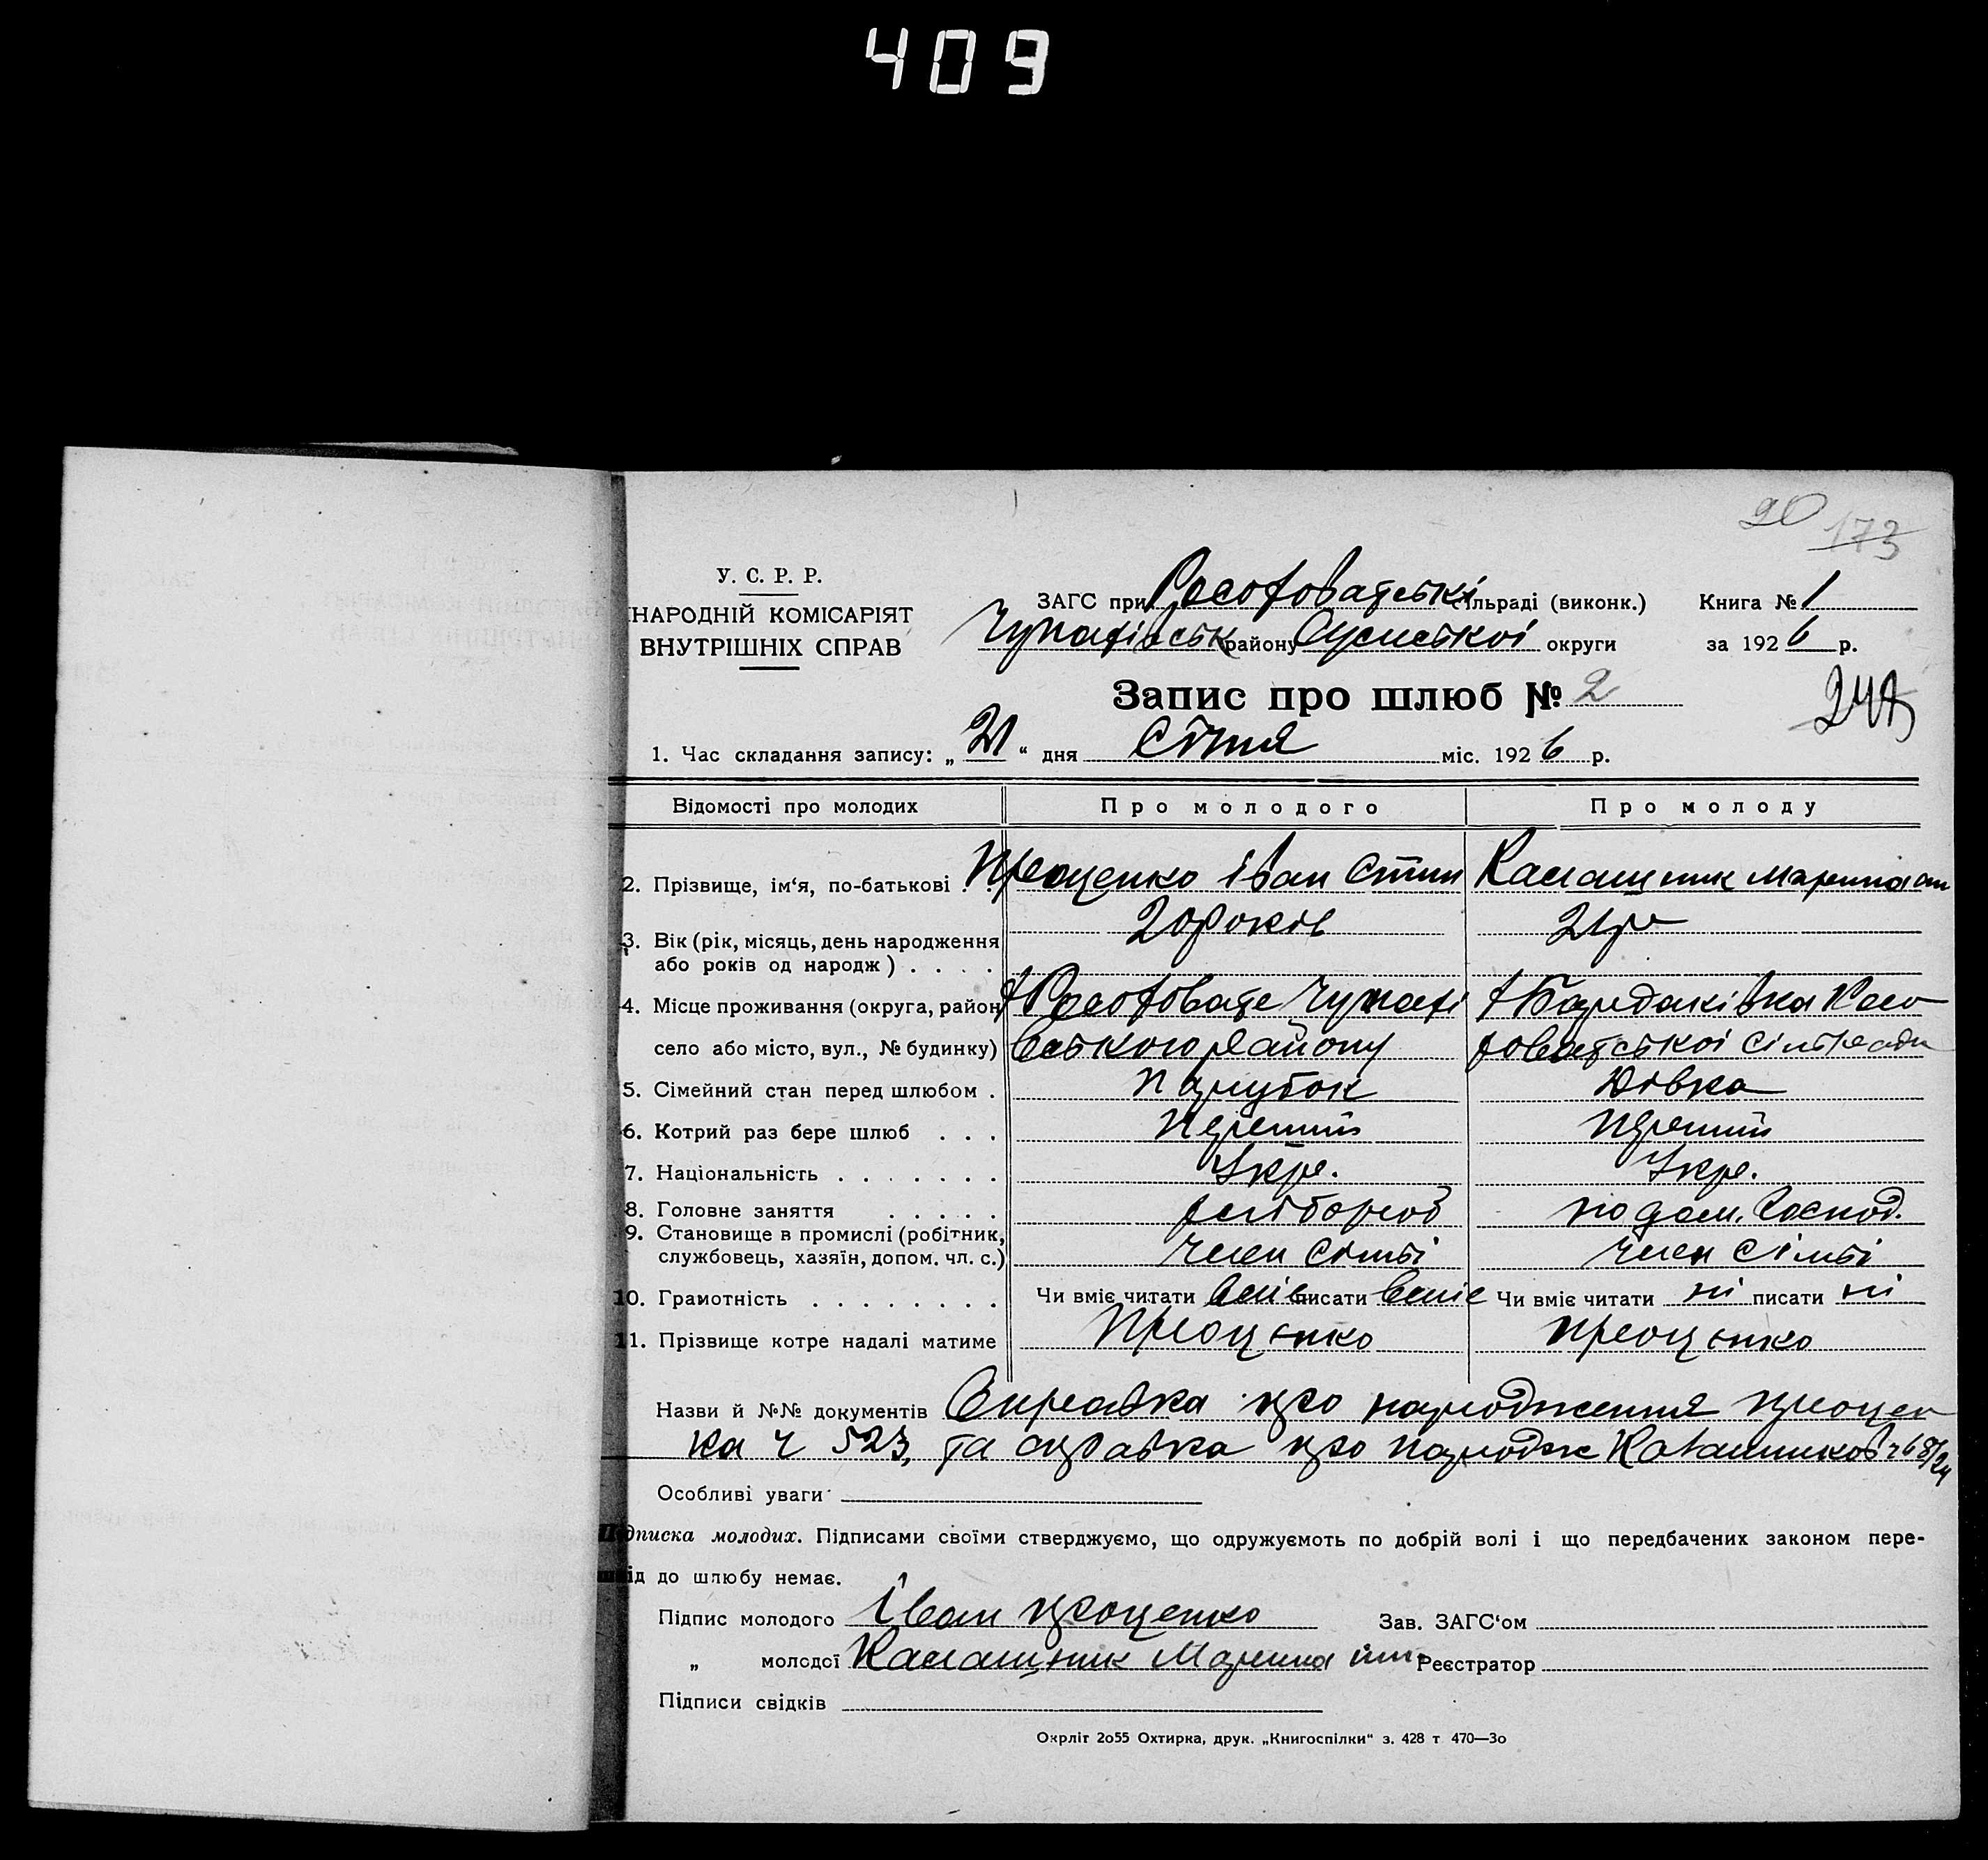 409
20 173
У. С. Р. Р.
НАРОДНІЙ КОМІСАРІЯТ
ВНУТРІШНІХ СПРАВ
ЗАГС при Расоховатській сільраді (виконк.) Книга № 1
Чупахівськ району Сумської округи за 1926 р.
Запис про шлюб № 2
1. Час складання запису: „21“ дня Січня міс. 1926 р.
Відомості про молодих Про молодого Про молоду
2. Прізвище, ім‘я, по-батькові . . Проценко Іван Калашник Марина
3. Вік (рік, місяць, день народження 20 років 21 р
або років од народж) . . . .
4. Місце проживання (округа, район Чупахі
село або місто, вул., № будинку) вського району ської сільради
5. Сімейний стан перед шлюбом . парубок Дівка
6. Котрий раз бере шлюб . . . перший перший
7. Національність . . . . . . . Укр. Укр.
8. Головне заняття . . . . . хлібороб по дом. господ.
9. Становище в промислі (робітник,
службовець, хазяїн, допом. чл. с.) член сімьї член сімьї
10. Грамотність . . . . . . . . Чи вміє читати вміє писати вміє Чи вміє читати ні писати ні
11. Прізвище котре надалі матиме Проценко Проценко
Назви й №№ документів Справка про народження Процен
ка ч 523, та справка про народж
Особливі уваги
Підписка молодих. Підписами своїми стверджуємо, що одружуємоть по добрій волі і що передбачених законом пере-
шкід до шлюбу немає.
Підпис молодого Іван Проценко Зав. ЗАГС‘ом
„ молодої Калашник Марина Реєстратор
Підписи свідків
Окрліт 2о55 Охтирка, друк. „Книгоспілки“ з. 428 т 470—3о